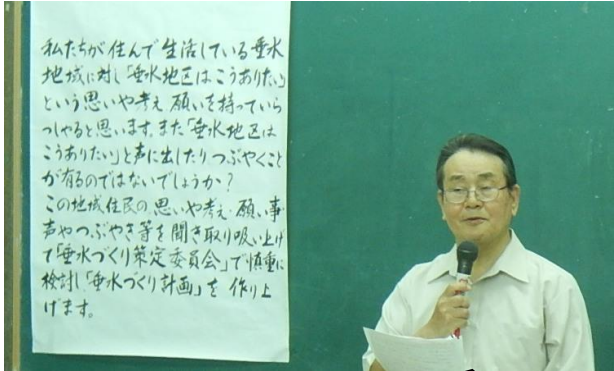 私たちが住んで生活している垂水
地域に対し「垂水地区はこうありたい」
という思いや考え 願いを持っていら
っしゃると思います。また「垂水地区は
こうありたい」と声に出したりつぶやくこと
が有るのではないでしょうか?
この地域住民の思いや考え・願い事
声やつぶやき等を聞き取り吸い上げ
て「垂水づくり策定委員会」で慎重に
検討し「垂水づくり計画」を 作り上
げます。